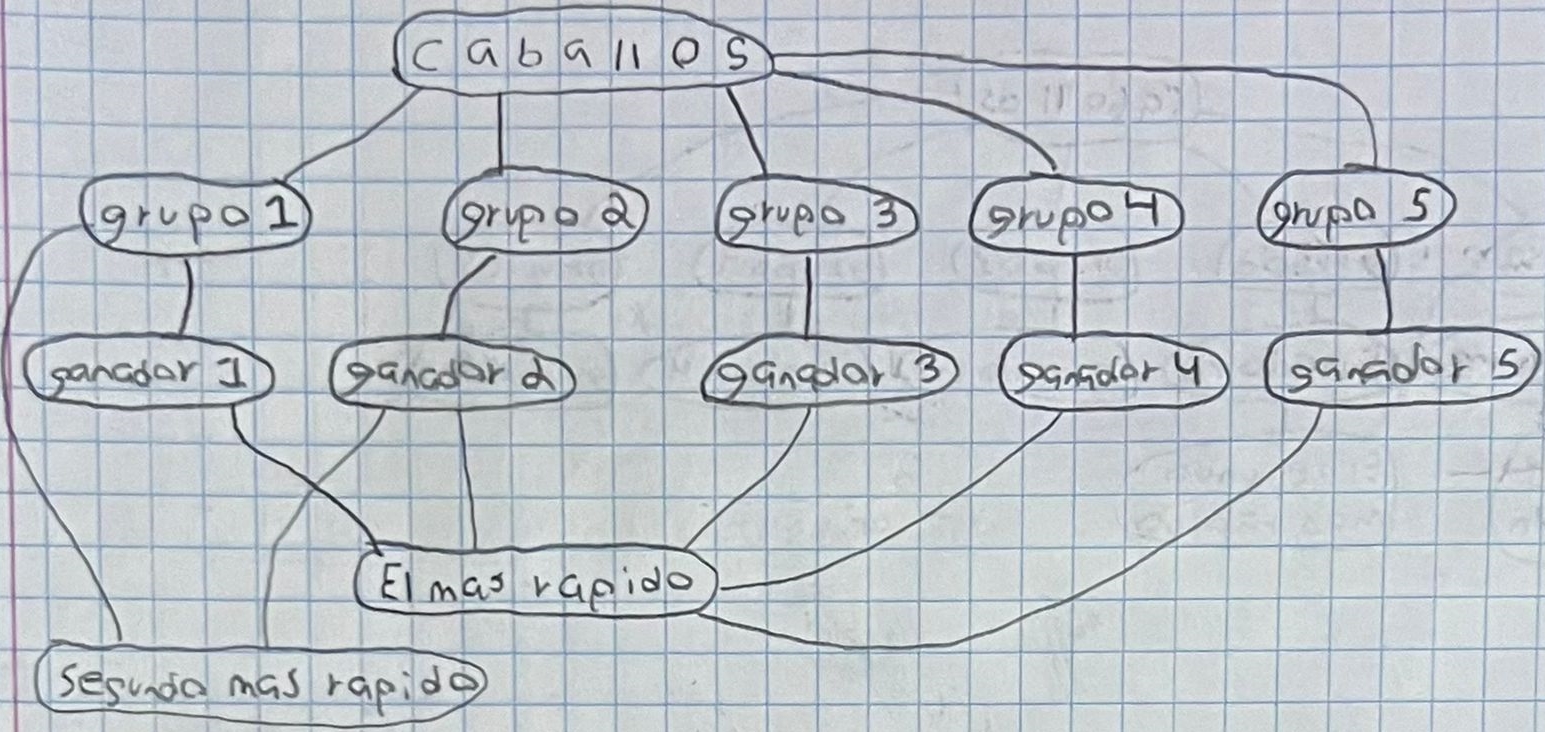 caballos
grupo 1
grupo 2
grupo 3
grupo 4
grupo 5
ganador 1
ganador 2
ganador 3
ganador 4
ganador 5
El mas rapido
Segundo mas rapido